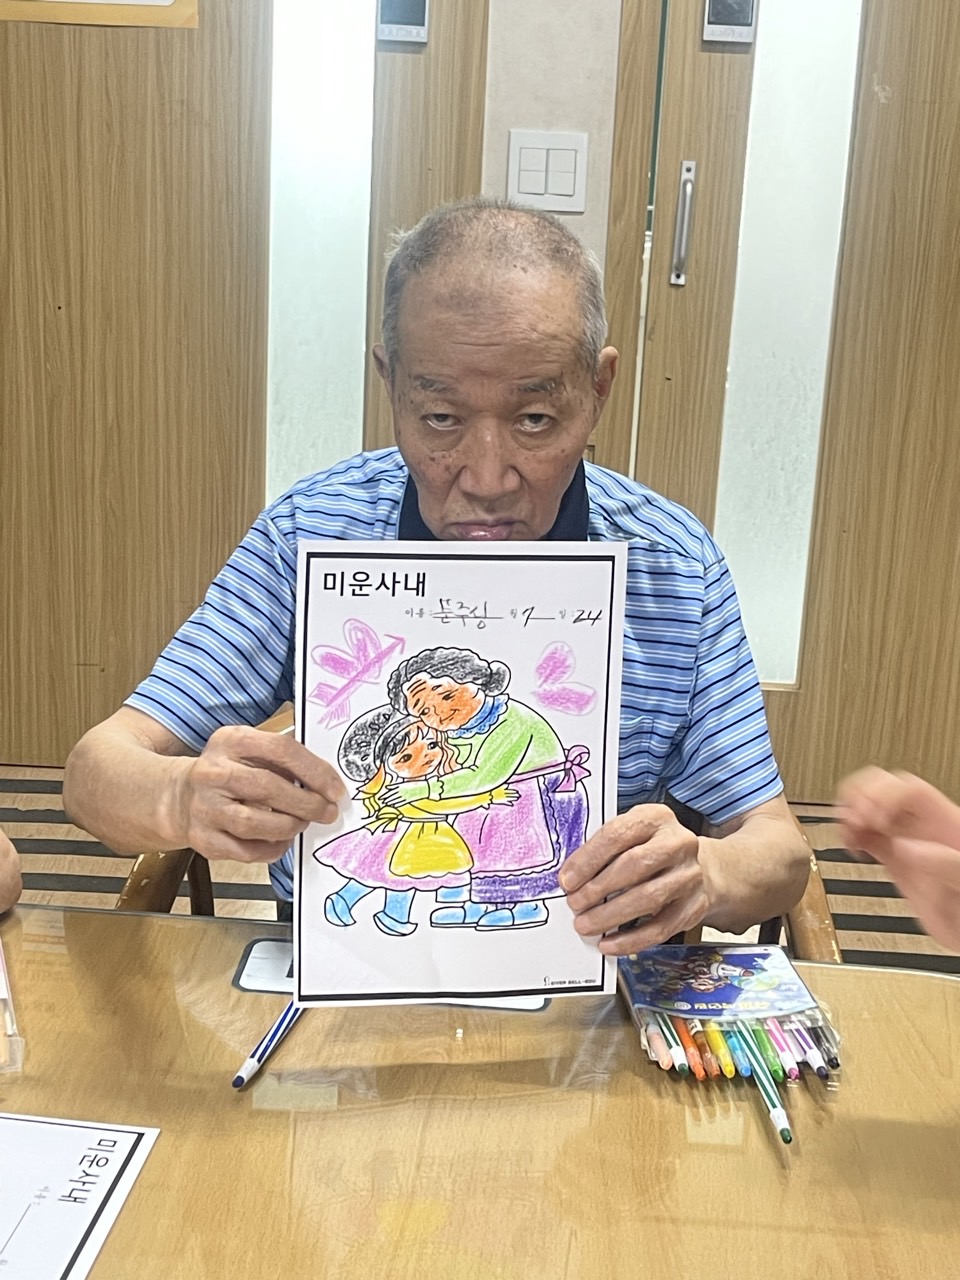 미운사내
이름: 문주성 월 7 일: 24
미운사내
이름: